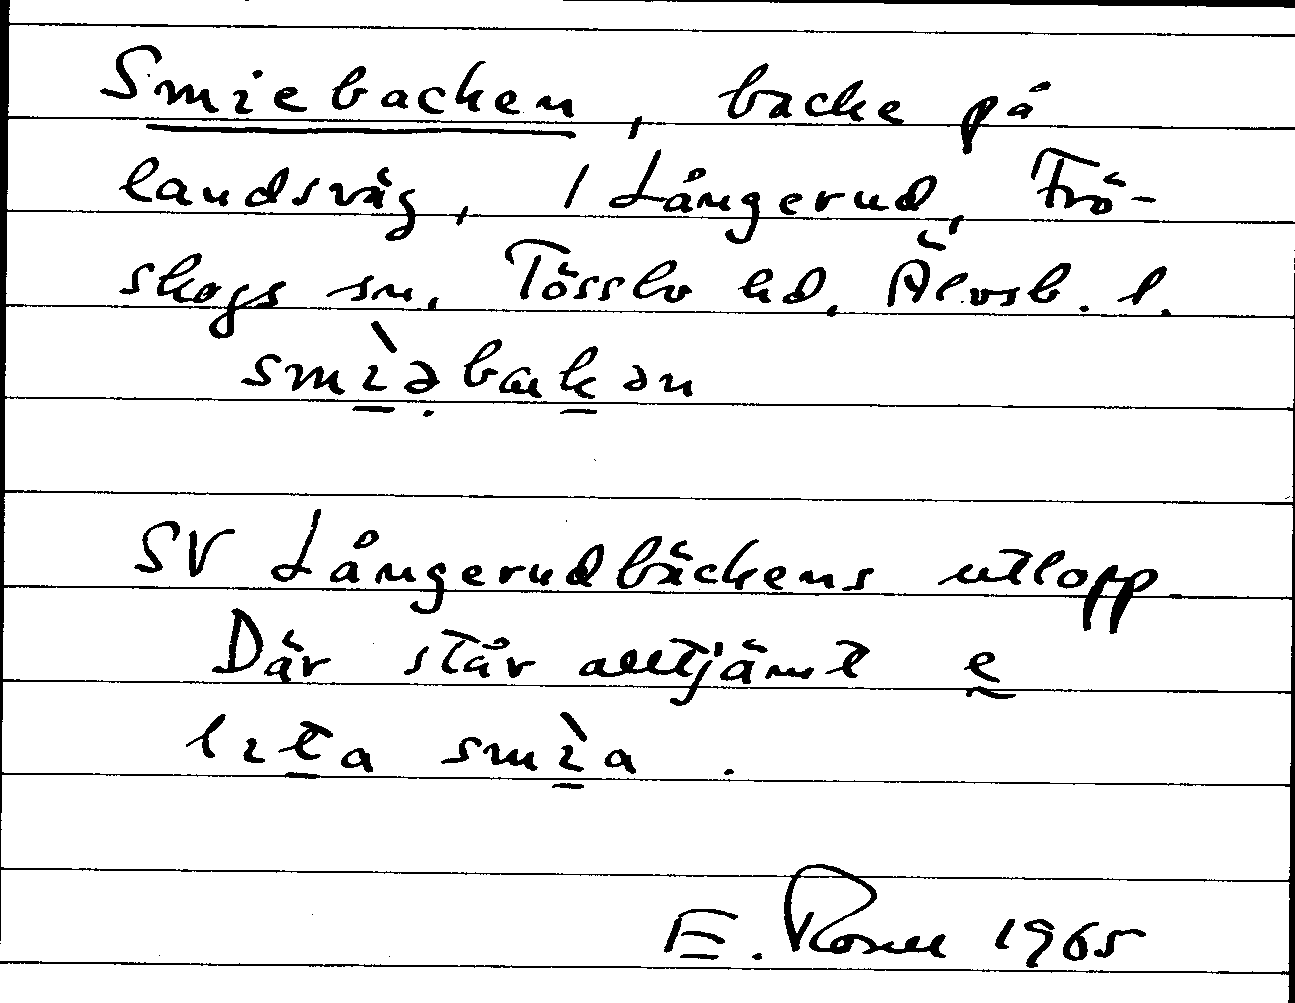 Smiebacken, backe på
landsväg, 1 Långerud, Frö-
skogs sn. Tössbo hd. Älvsb. l.
smìəbakən
SV Långerudbäckens utlopp
Där står alltjämt e
lita smìa.
E. 1965